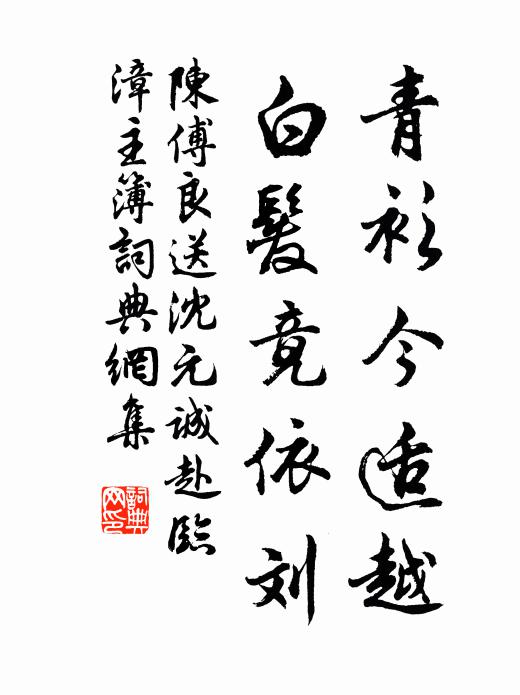 青衫今适越
白髮竟依刘
陳傅良送沈元誠赴臨
漳主簿詞典網集
詞典网印